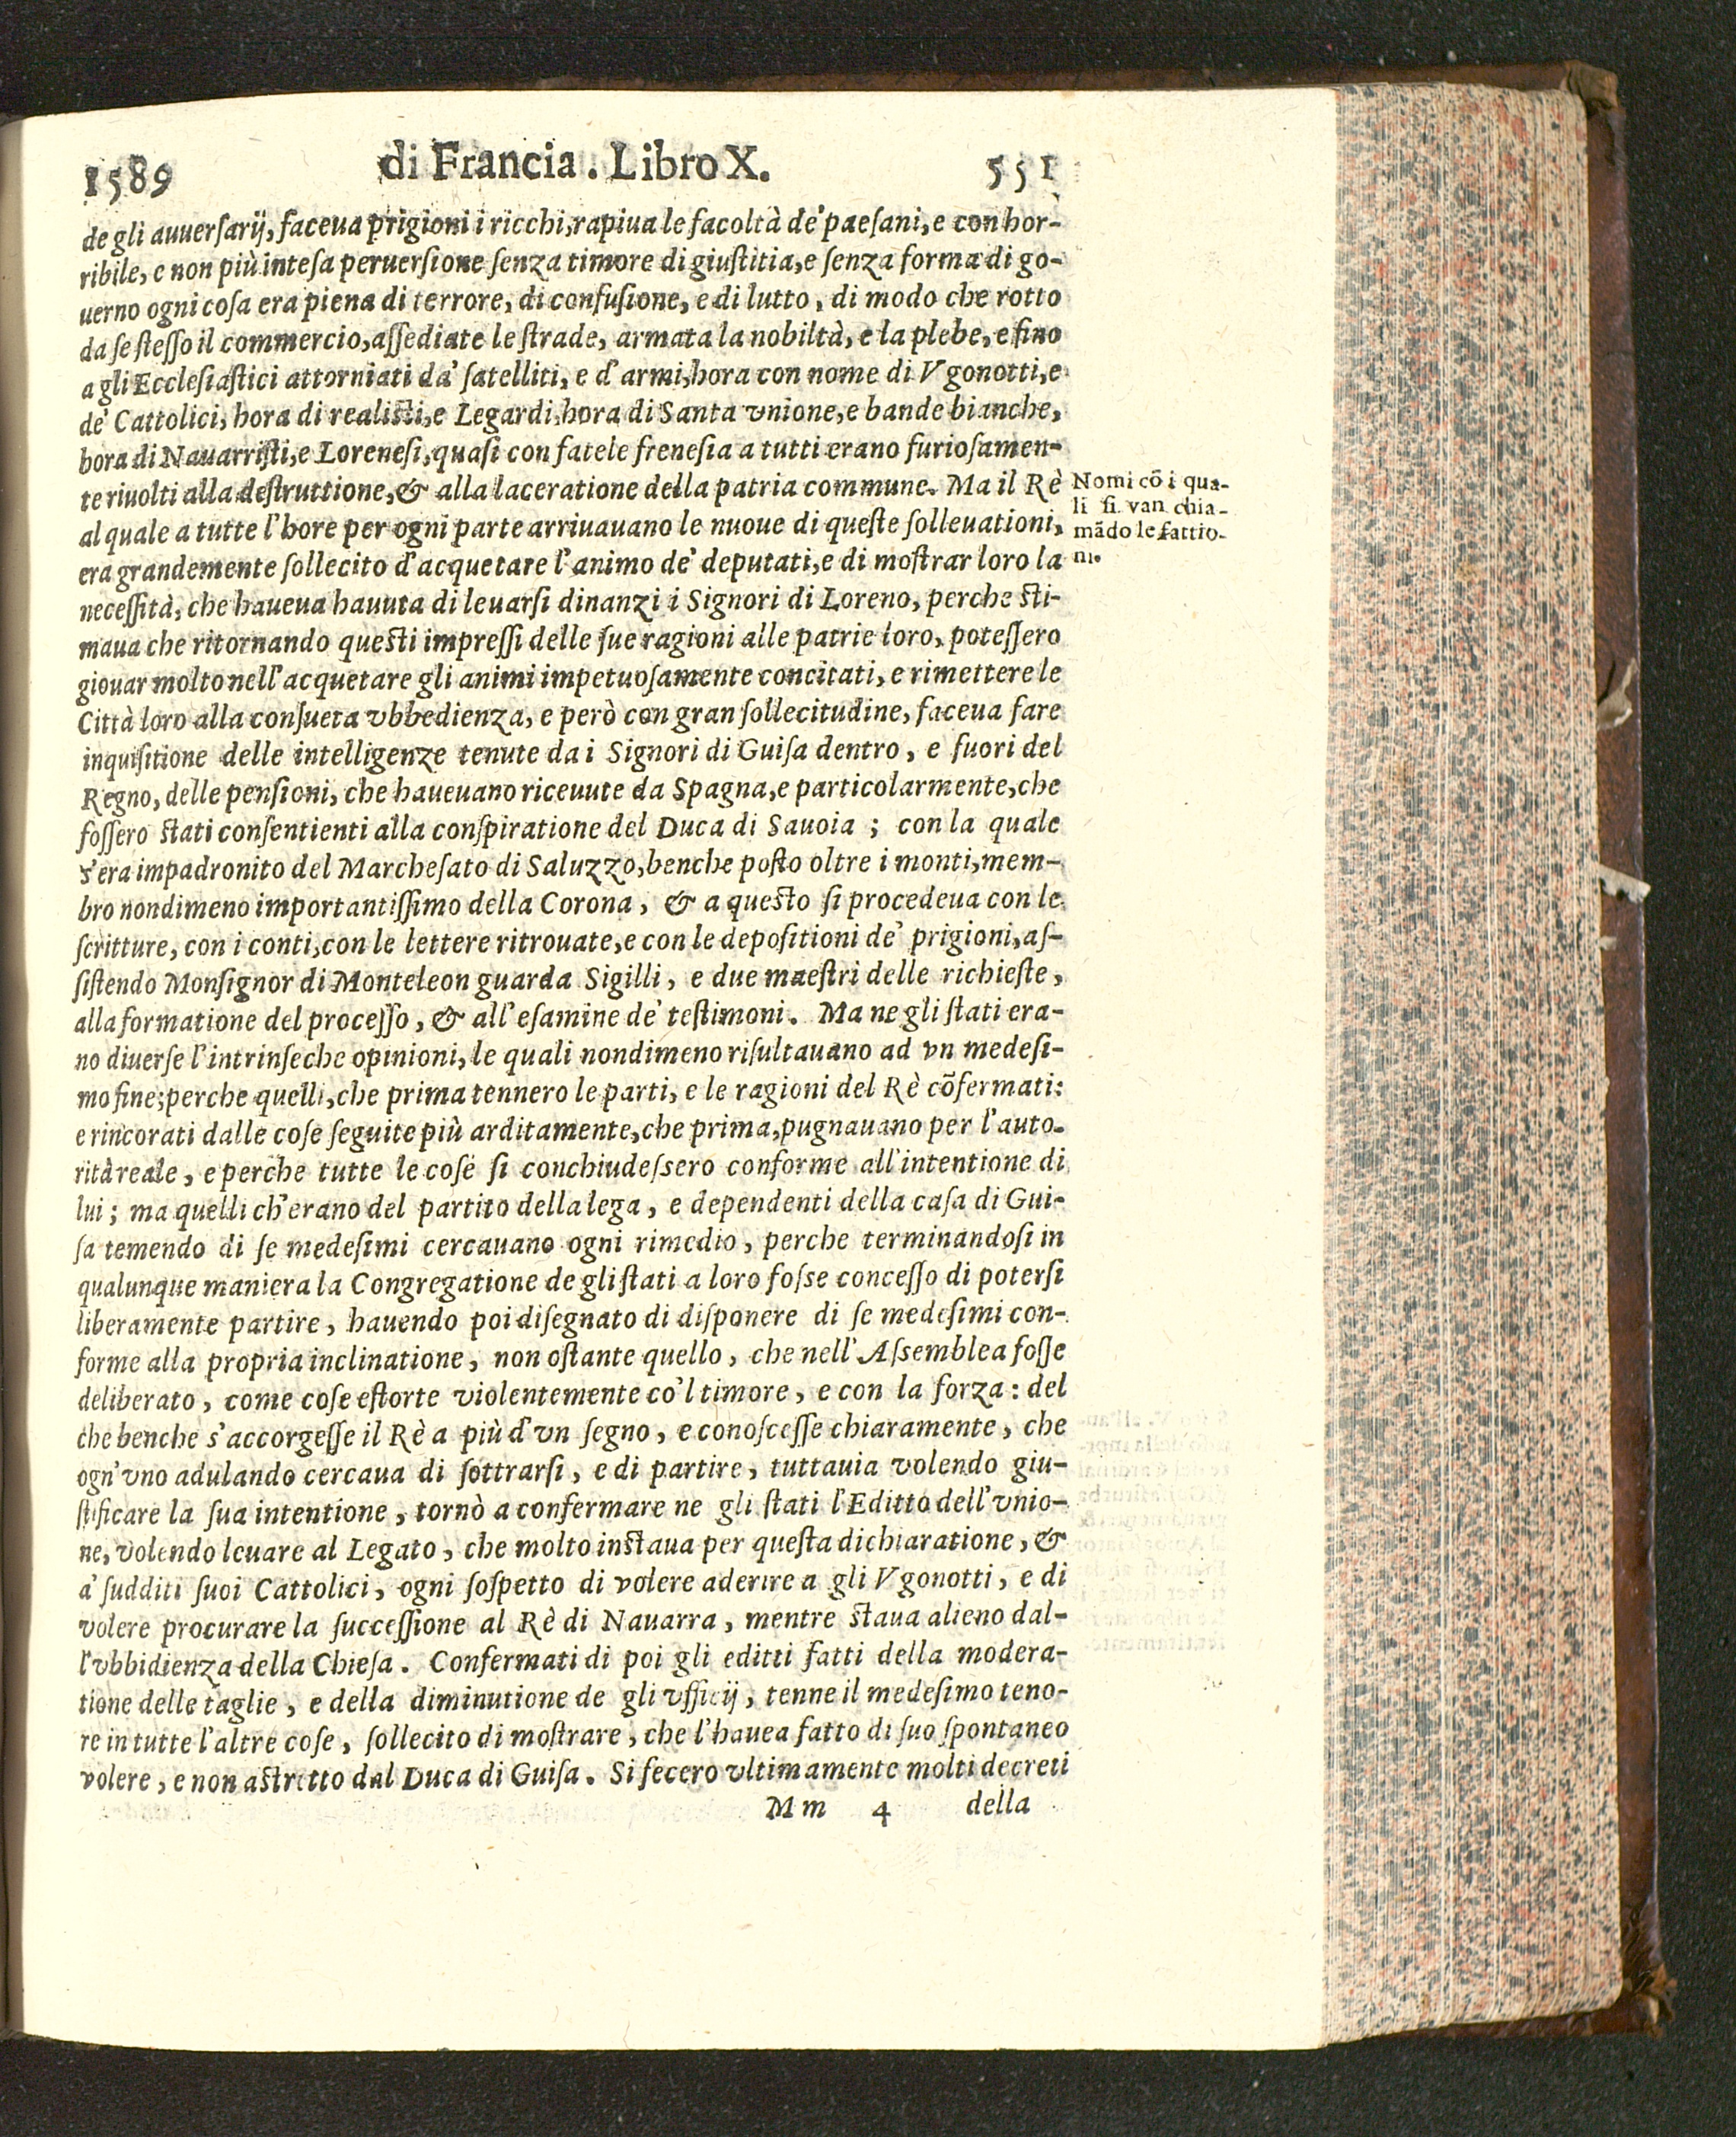 1589 di Francia. Libro X. 551
de gli auuerſarij, faceua prigioni i ricchi, rapiua le facoltà de' paeſani, e con hor-
ribile, e non più inteſa peruerſione ſenza timore di giuſtitia, e ſenza forma di go-
uerno ogni coſa era piena di terrore, di confuſione, e di lutto, di modo che rotto
da ſe ſteſſo il commercio, aſſediate le ſtrade, armata la nobiltà, e la plebe, e fino
a gli Eccleſiaſtici attorniati da' ſatelliti, e d'armi, hora con nome di Vgonotti, e
de' Cattolici, hora di realiſti, e Legardi, hora di Santa vnione, e bande bianche,
hora di Nauarriſti, e Loreneſi, quaſi con fatele freneſia a tutti erano furioſamen-
te riuolti alla deſtruttione, & alla laceratione della patria commune. Ma il Rè
Nomi cō i qua-
li ſi van chia-
mādo le fattio-
ni.
al quale a tutte l'hore per ogni parte arriuauano le nuoue di queſte ſolleuationi,
era grandemente ſollecito d'acquetare l'animo de' deputati, e di moſtrar loro la
neceſſità, che haueua hauuta di leuarſi dinanzi i Signori di Loreno, perche ſti-
maua che ritornando queſti impreſſi delle ſue ragioni alle patrie loro, poteſſero
giouar molto nell'acquetare gli animi impetuoſamente concitati, e rimettere le
Città loro alla conſueta vbbedienza, e però con gran ſollecitudine, faceua fare
inquiſitione delle intelligenze tenute da i Signori di Guiſa dentro, e fuori del
Regno, delle penſioni, che haueuano riceuute da Spagna, e particolarmente, che
foſſero ſtati conſentienti alla conſpiratione del Duca di Sauoia ; con la quale
s'era impadronito del Marcheſato di Saluzzo, benche poſto oltre i monti, mem-
bro nondimeno importantiſſimo della Corona, & a queſto ſi procedeua con le
ſcritture, con i conti, con le lettere ritrouate, e con le depoſitioni de' prigioni, aſ-
ſiſtendo Monſignor di Monteleon guarda Sigilli, e due maeſtri delle richieſte,
alla formatione del proceſſo, & all'eſamine de' teſtimoni. Ma ne gli ſtati era-
no diuerſe l'intrinſeche opinioni, le quali nondimeno riſultauano ad vn medeſi-
mo fine; perche quelli, che prima tennero le parti, e le ragioni del Rè cōfermati:
e rincorati dalle coſe ſeguite più arditamente, che prima, pugnauano per l'auto-
rità reale, e perche tutte le coſe ſi conchiudeſsero conforme all'intentione di
lui ; ma quelli ch'erano del partito della lega, e dependenti della caſa di Gui-
ſa temendo di ſe medeſimi cercauano ogni rimedio, perche terminandoſi in
qualunque maniera la Congregatione de gli ſtati a loro foſse conceſſo di poterſi
liberamente partire, hauendo poi diſegnato di diſponere di ſe medeſimi con-
forme alla propria inclinatione, non oſtante quello, che nell'Aſsemblea foſſe
deliberato, come coſe eſtorte violentemente co'l timore, e con la forza : del
che benche s'accorgeſſe il Rè a più d'vn ſegno, e conoſceſſe chiaramente, che
ogn'vno adulando cercaua di ſottrarſi, e di partire, tuttauia volendo giu-
ſtificare la ſua intentione, tornò a confermare ne gli ſtati l'Editto dell'vnio-
ne, volendo leuare al Legato, che molto inſtaua per queſta dichiaratione, &
a' ſudditi ſuoi Cattolici, ogni ſoſpetto di volere aderire a gli Vgonotti, e di
volere procurare la ſucceſſione al Rè di Nauarra, mentre ſtaua alieno dal-
l'vbbidienza della Chieſa. Confermati di poi gli editti fatti della modera-
tione delle taglie, e della diminutione de gli vfficij, tenne il medeſimo teno-
re in tutte l'altre coſe, ſollecito di moſtrare, che l'hauea fatto di ſuo ſpontaneo
volere, e non aſtretto dal Duca di Guiſa. Si fecero vltimamente molti decreti
Mm 4 della